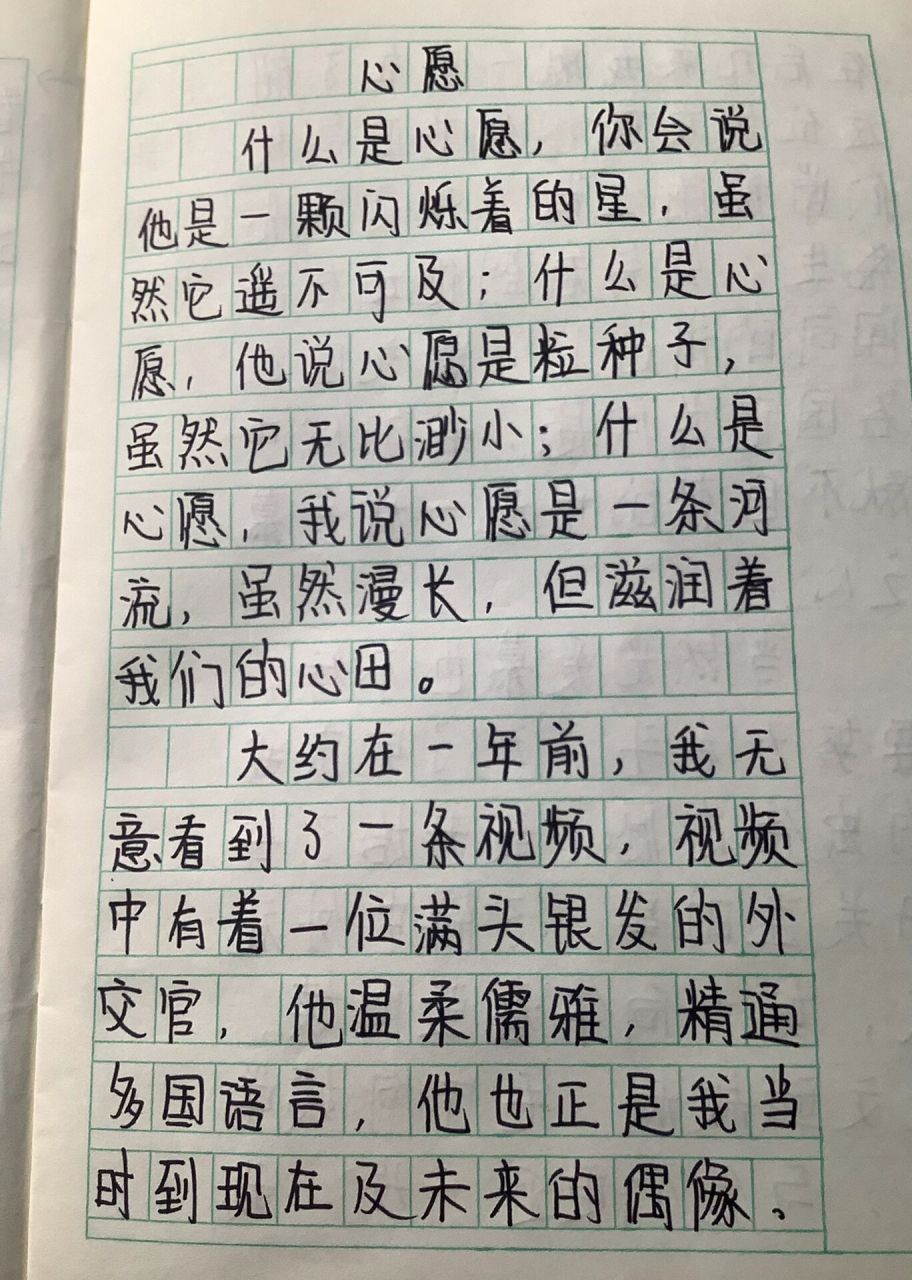 心愿
什么是心愿，你会说
他是一颗闪烁着的星，虽
然它遥不可及；什么是心
愿，他说心愿是粒种子，
虽然它无比渺小；什么是
心愿，我说心愿是一条河
流，虽然漫长，但滋润着
我们的心田。
大约在一年前，我无
意看到了一条视频，视频
中有着一位满头银发的外
交官，他温柔儒雅，精通
多国语言，他也正是我当
时到现在及未来的偶像、